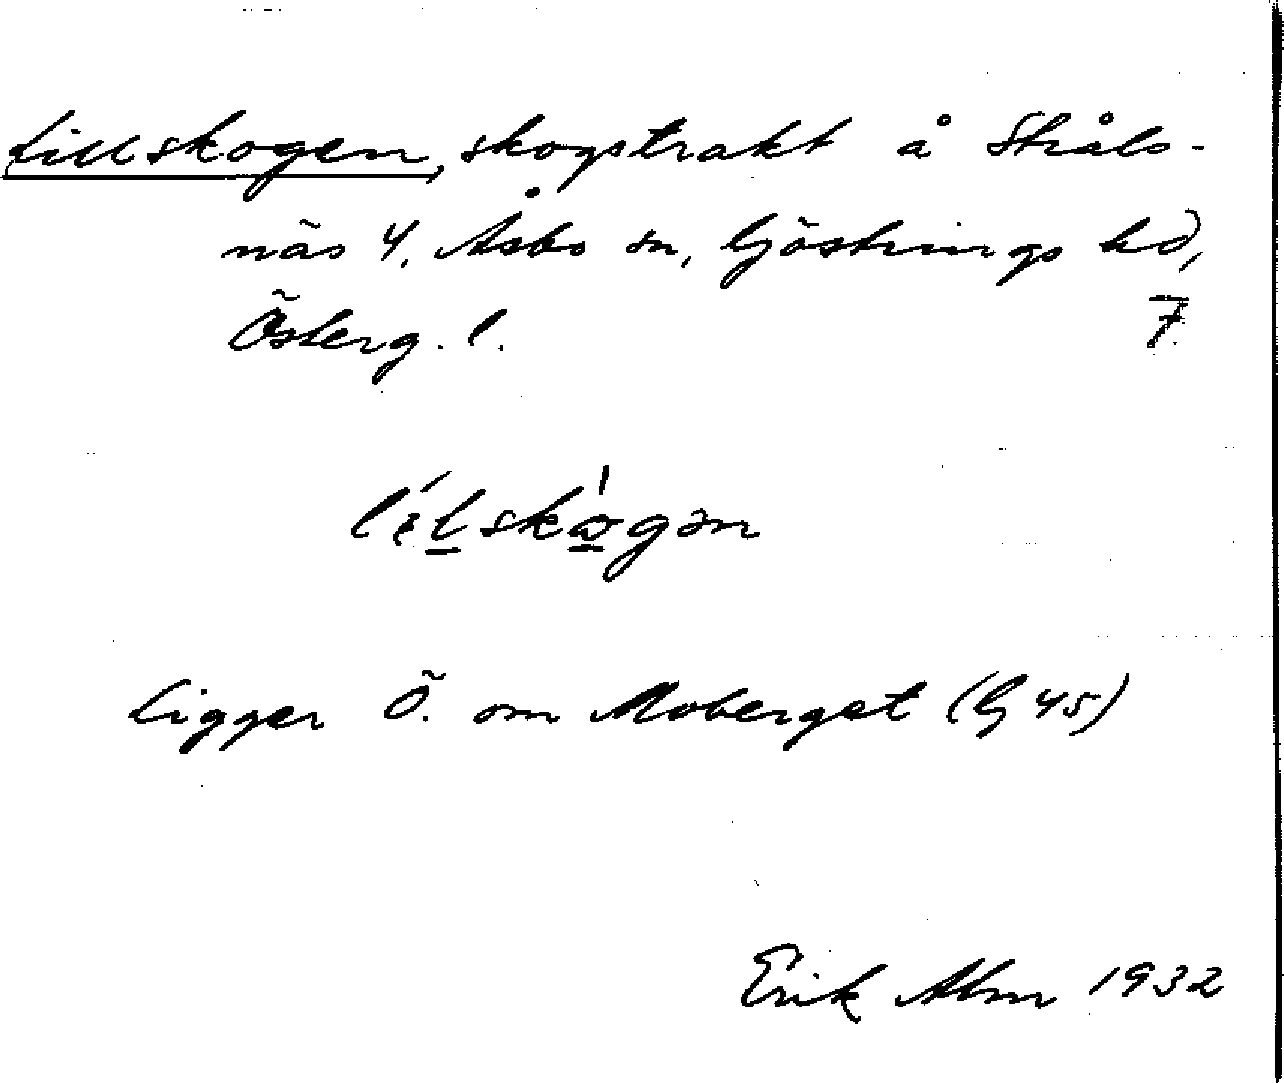 Lillskogen, skogstrakt å Stråls-
näs 4, Åsbo sn, Göstrings hd,
Österg. l. 7
Ligger Ö. om Moberget (G 45)
Erik Abm 1932